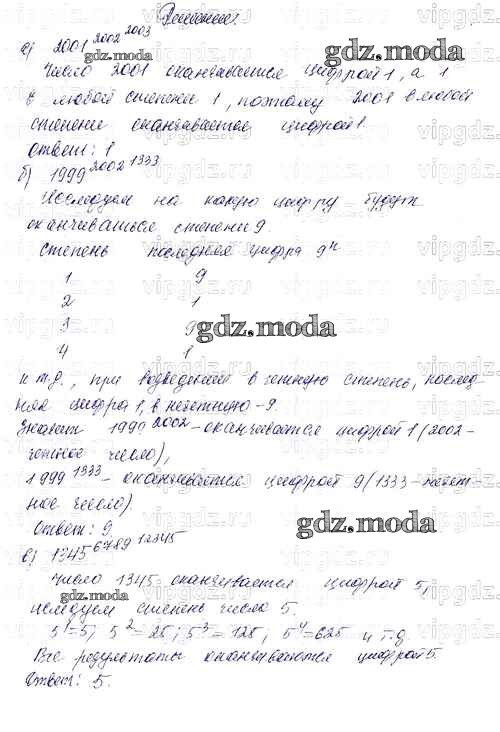 Решение.
а) 2001^2002^2003
Число 2001 оканчивается цифрой 1, а 1
в любой степени 1, поэтому 2001 в любой
степени оканчивается цифрой 1.
Ответ: 1
б) 1999^2002^1333
Исследуем на какую цифру будут
оканчиваться степени 9.
Степень последняя цифра 9^n
1 9
2 1
3 9
4 1
и т.д., при возведении в четную степень, послед-
няя цифра 1, в нечетную - 9.
Значит 1999^2002 - оканчивается цифрой 1 (2002 -
четное число),
1999^1333 - оканчивается цифрой 9 (1333 - нечет-
ное число).
Ответ: 9.
в) 1345^6789^12345
Число 1345 оканчивается цифрой 5,
исследуем степень числа 5.
5^1=5; 5^2=25; 5^3=125; 5^4=625 и т.д.
Все результаты оканчиваются цифрой 5.
Ответ: 5.
gdz.moda
gdz.moda
gdz.moda
gdz.moda
gdz.moda
gdz.moda
gdz.moda
vipgdz.ru